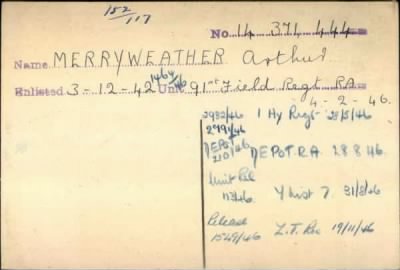 152/117
No 14 371 444
Name MERRYWEATHER Arthur
1464/46
Enlisted 3-12-42 Unit 91st Field Regt RA
4-2-46.
2982/46 1 Hy Regt 28/5/46
2791/46
DEPOT 210/46 DEPOT R.A. 28 8 46.
Unit Rel 113/46. Y List 7. 31/8/46
Release 1549/46 Z.T. Res 19/11/46